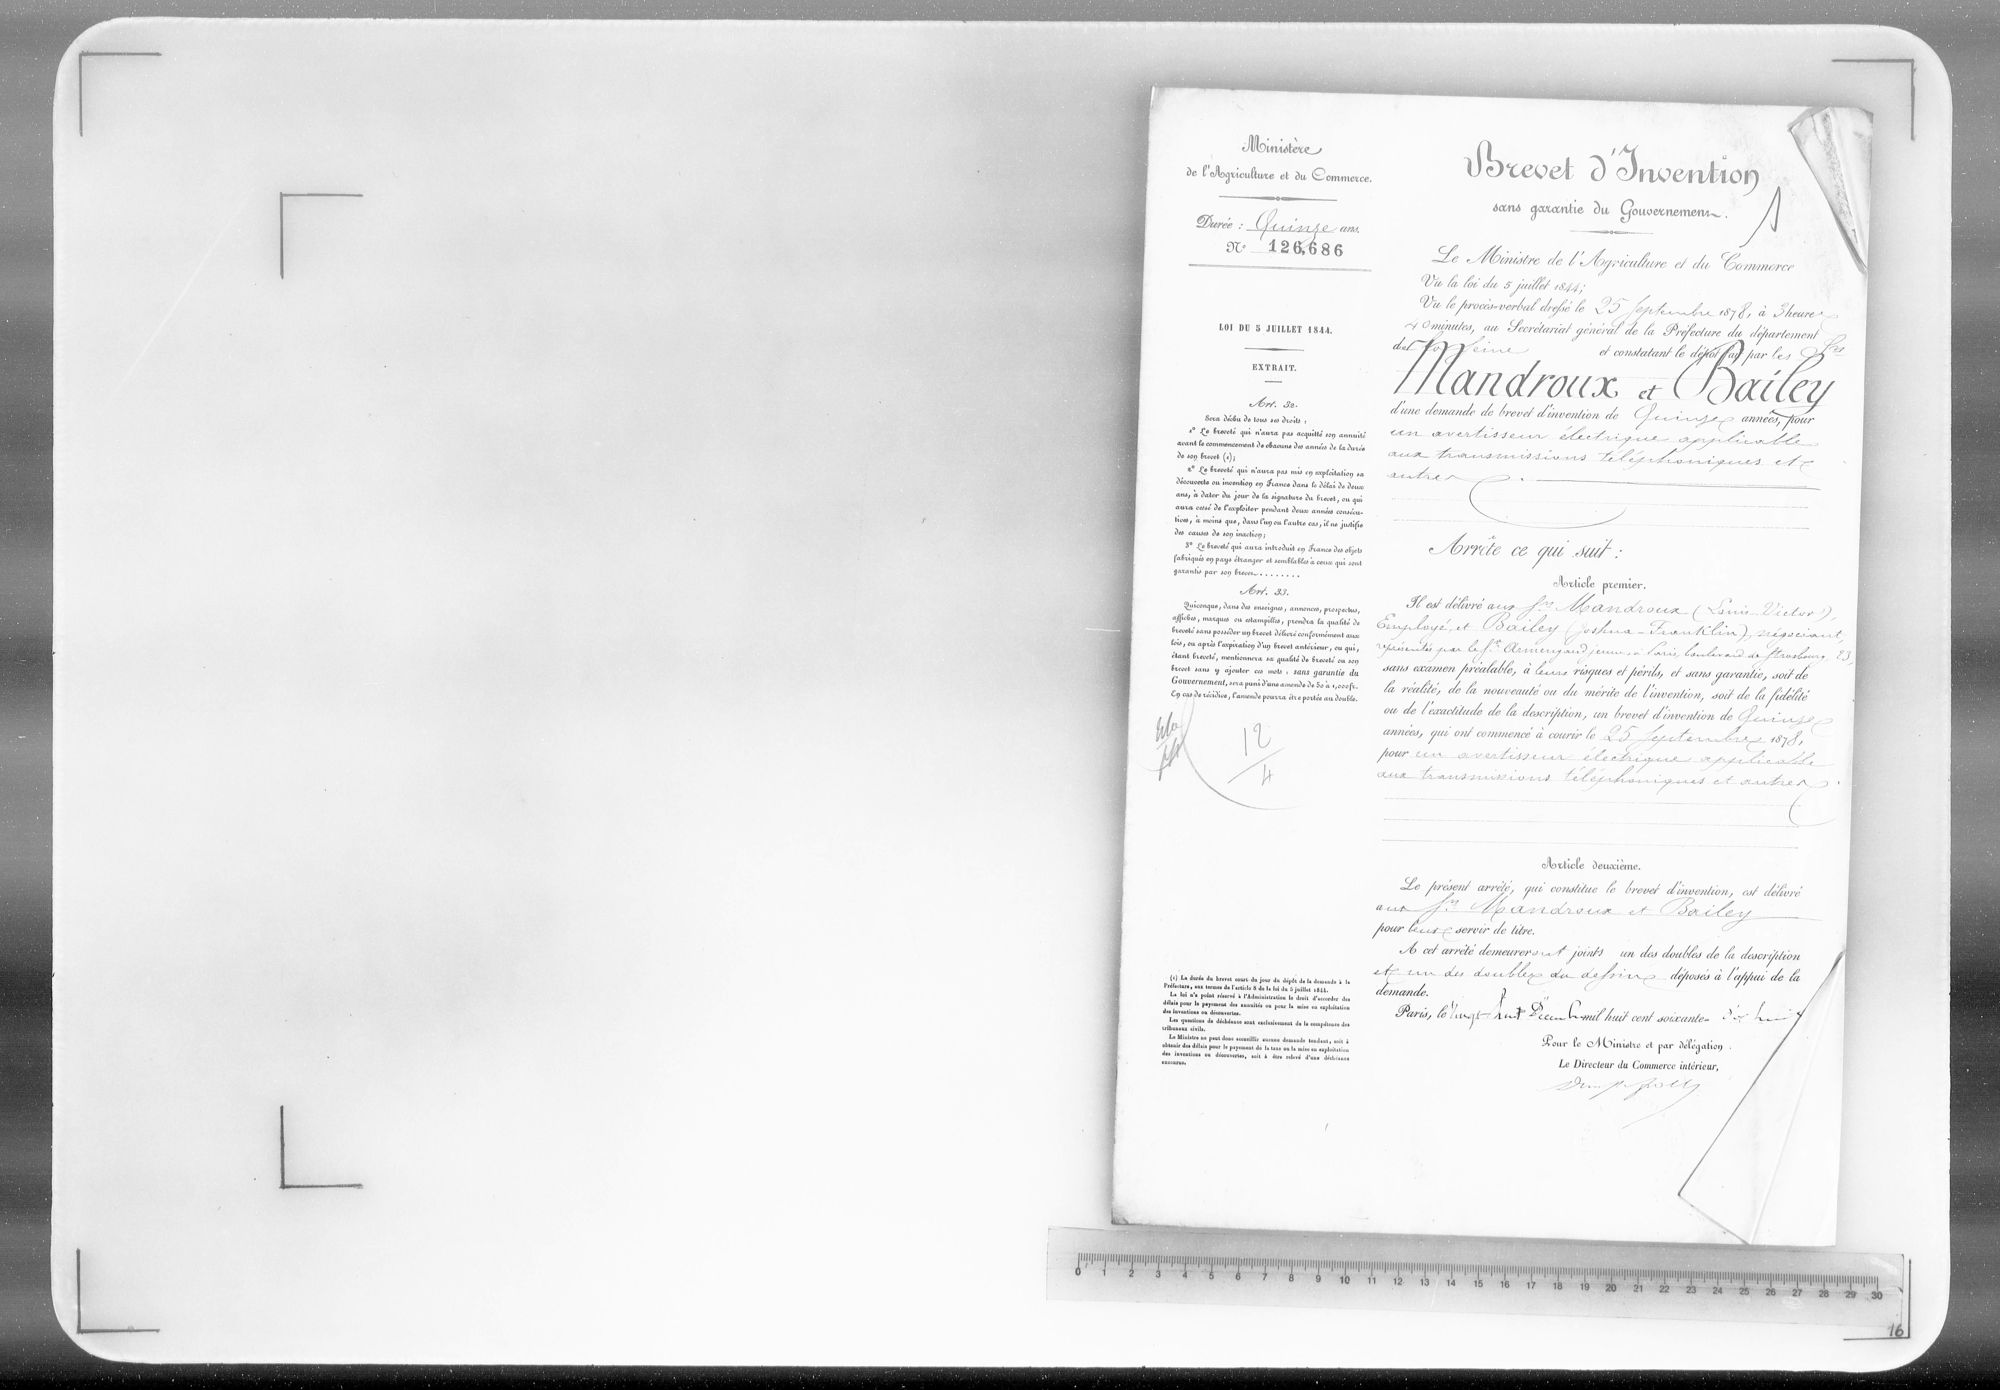 Ministère
de l'Agriculture et du Commerce.
Durée : Quinze ans.
N° 126,686
LOI DU 5 JUILLET 1844.
EXTRAIT.
Art. 32.
Sera déchu de tous ses droits :
1° Le breveté qui n'aura pas acquitté son annuité
avant le commencement de chacune des années de la durée
de son brevet (1);
2° Le breveté qui n'aura pas mis en exploitation sa
découverte ou invention en France dans le délai de deux
ans, à dater du jour de la signature du brevet, ou qui
aura cessé de l'exploiter pendant deux années consécu-
tives, à moins que, dans l'un ou l'autre cas, il ne justifie
des causes de son inaction;
3° Le breveté qui aura introduit en France des objets
fabriqués en pays étranger et semblables à ceux qui sont
garantis par son brevet........
Art. 33.
Quiconque, dans des enseignes, annonces, prospectus,
affiches, marques ou estampilles, prendra la qualité de
breveté sans posséder un brevet délivré conformément aux
lois, ou après l'expiration d'un brevet antérieur, ou qui,
étant breveté, mentionnera sa qualité de breveté ou son
brevet sans y ajouter ces mots : sans garantie du
Gouvernement, sera puni d'une amende de 50 à 1,000 fr.
En cas de récidive, l'amende pourra être portée au double.
12
4
(1) La durée du brevet court du jour du dépôt de la demande à la
Préfecture, aux termes de l'article 8 de la loi du 5 juillet 1844.
La loi n'a point réservé à l'Administration le droit d'accorder des
délais pour le payement des annuités ou pour la mise en exploitation
des inventions ou découvertes.
Les questions de déchéance sont exclusivement de la compétence des
tribunaux civils.
Le Ministre ne peut donc accueillir aucune demande tendant, soit à
obtenir des délais pour le payement de la taxe ou la mise en exploitation
des inventions ou découvertes, soit à être relevé d'une déchéance
encourue.
Brevet d'Invention
sans garantie du Gouvernement.
1
Le Ministre de l'Agriculture et du Commerce
Vu la loi du 5 juillet 1844;
Vu le procès-verbal dressé le 25 Septembre 1878, à 3 heures
40 minutes, au Secrétariat général de la Préfecture du département
de la Seine et constatant le dépôt fait par les Srs
Mandroux et Bailey
d'une demande de brevet d'invention de Quinze années, pour
un avertisseur électrique applicable
aux transmissions téléphoniques et
autres.
Arrête ce qui suit :
Article premier.
Il est délivré aux Srs Mandroux (Louis-Victor),
Employé, et Bailey (Joshua-Franklin), négociant,
représentés par le Sr Armengaud jeune, à Paris, boulevard de Strasbourg, 23,
sans examen préalable, à leurs risques et périls, et sans garantie, soit de
la réalité, de la nouveauté ou du mérite de l'invention, soit de la fidélité
ou de l'exactitude de la description, un brevet d'invention de Quinze
années, qui ont commencé à courir le 25 Septembre 1878,
pour un avertisseur électrique applicable
aux transmissions téléphoniques et autres.
Article deuxième.
Le présent arrêté, qui constitue le brevet d'invention, est délivré
aux Srs Mandroux et Bailey
pour leur servir de titre.
A cet arrêté demeureront joints un des doubles de la description
et un des doubles du dessin déposés à l'appui de la
demande.
Paris, le Vingt huit Décembre mil huit cent soixante-dix huit
Pour le Ministre et par délégation.
Le Directeur du Commerce intérieur,
0 1 2 3 4 5 6 7 8 9 10 11 12 13 14 15 16 17 18 19 20 21 22 23 24 25 26 27 28 29 30
16